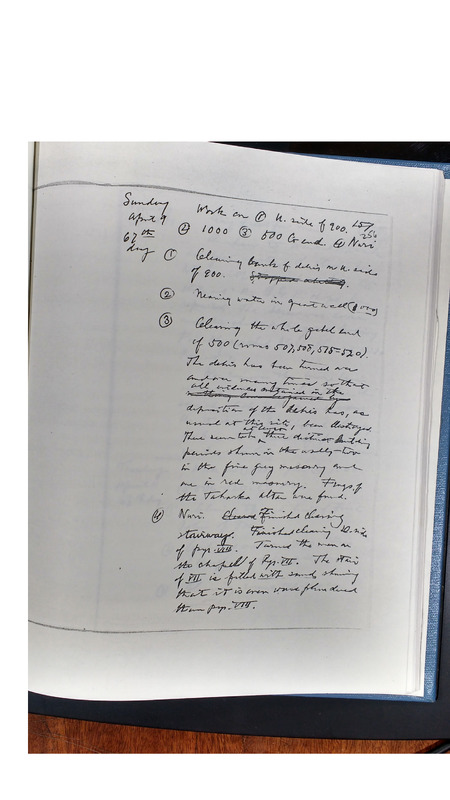 Sunday
April 9
67th
day
Work on ① N. side of 900.
② 1000 ③ 500 G end. ④ Nuri
① Clearing bank of debris on N. side
of 900.
② Nearing water in great well (1000)
③ Clearing the whole end
of 500 (rooms 507, 508, 515-520).
The debris has been turned over
and over many times so that
all evidence contained in the
deposition of the debris has, as
usual at this site, been destroyed.
There seem to be at least three distinct building
periods shown in the walls - two
in the fine grey masonry and
one in red masonry. Frags. of
the Taharka altar were found.
④ Nuri. Finished clearing
stairways. Finished clearing side
of pyr. VIII. Turned the men on
the chapel of Pyr. VII. The stair
of VII is filled with sand showing
that it is even more plundered
than pyr. VIII.